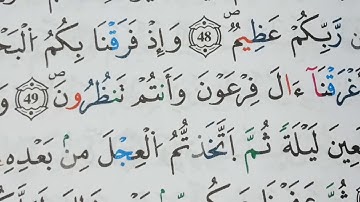 ن رَّبِّكُمْ عَظِيمٌ ٤٨ وَإِذْ فَرَقْنَا بِكُمُ اُ۬لْبَحْ
غْرَقْنَآ ءَالَ فِرْعَوْنَ وَأَنتُمْ تَنظُرُونَ ٤٩ وَ
عِينَ لَيْلَةً ثُمَّ اَ۪تَّخَذتُّمُ اُ۬لْعِجْلَ مِنۢ بَعْدِهِۦ